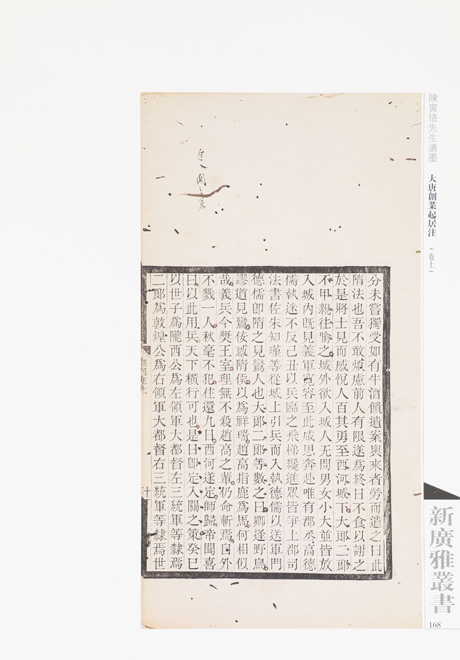 陳寅恪先生遺墨 大唐創業起居注（卷上）
分未嘗獨受如有牛酒饋遺案輿來者勞而遣之曰此
隋法也吾不敢煩慮前人有限遂爲終日不食以謝之
於是將士見而感悅人百其勇至西河城下大郎二郎
不甲親往喻之城外欲入城人無問男女小大並皆放
入城內既見義軍寬容至此咸思奔赴唯有郡丞高德
儒執迷不反己丑以兵臨之飛梯纔進眾皆爭上郡司
法書佐朱知瑾等從城上引兵而入執德儒以送軍門
德儒卽隋之見鸞人也大郎二郎等數之曰卿逢野鳥
謬道見鸞佞惑隋侯以爲祥瑞趙高指鹿爲馬何相似
哉義兵今獎王室理無不殺趙高之輩仍命斬焉自外
不戮一人秋毫不犯往還九日西河遂定師歸帝聞喜
曰以此用兵天下橫行可也是日卽定入關之策癸巳
以世子爲隴西公爲左領軍大都督左三統軍等隸焉
二郎爲敦煌公爲右領軍大都督右三統軍等隸焉世
新廣雅叢書
168